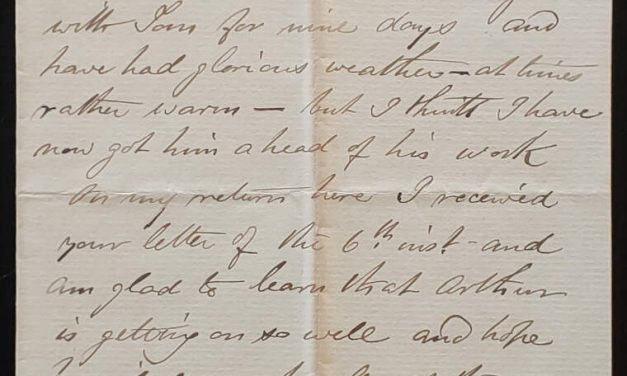 with Tom for nine days and
have had glorious weather – at times
rather warm – but I think I have
now got him ahead of his work
On my return here I received
your letter of the 6th inst - and
am glad to learn that Arthur
is getting on so well and hope